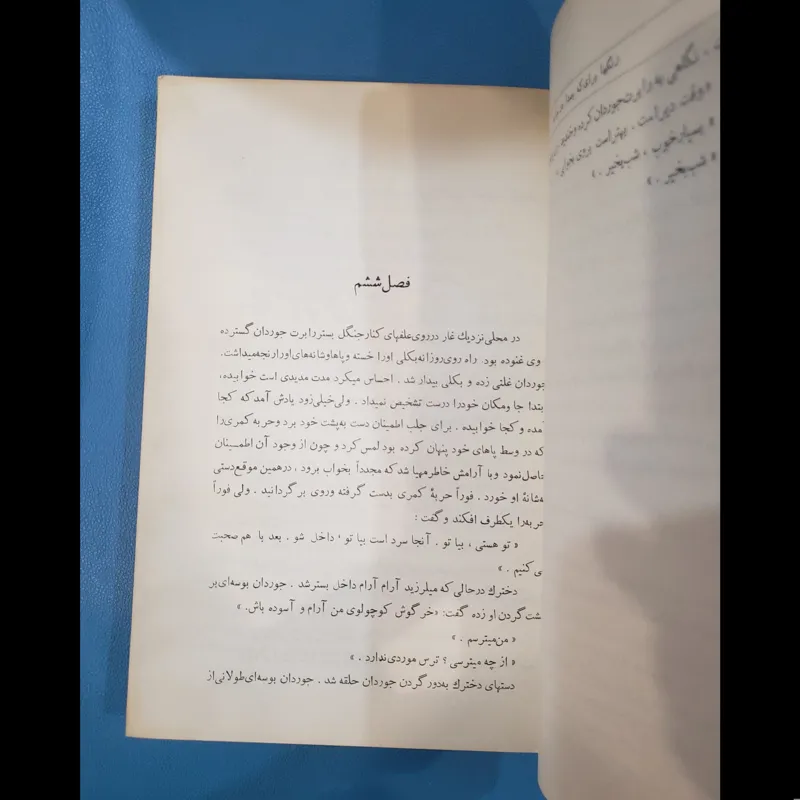 زنگها برای که
نگاهی به رابرت جوردان کرده و
« وقت دیر است . بهتر است بروی بخوابی »
« بسیار خوب ، شب‌بخیر . »
« شب‌بخیر . »
فصل ششم
در محلی نزدیك غار درروی علفهای کنار جنگل بستر رابرت جوردان گسترده
وی غنوده بود. راه روی روزانه بکلی اورا خسته و پاها وشانه‌های اورا رنجه میداشت.
جوردان غلتی زده و بکلی بیدار شد . احساس میکرد مدت مدیدی است خوابیده،
بتدا جا ومکان خودرا درست تشخیص نمیداد . ولی خیلی زود یادش آمد که کجا
آمده و کجا خوابیده . برای جلب اطمینان دست به‌پشت خود برد وحربه کمری را
که در وسط پاهای خود پنهان کرده بود لمس کرد و چون از وجود آن اطمینان
حاصل نمود و با آرامش خاطر مهیا شد که مجدداً بخواب برود ، درهمین موقع دستی
به‌شانهٔ او خورد . فوراً حربهٔ کمری بدست گرفته وروی بر گردانید . ولی فوراً
حربه را یکطرف افکند و گفت :
« تو هستی ، بیا تو . آنجا سرد است بیا تو ، داخل شو . بعد با هم صحبت
می کنیم . »
دخترك درحالی که میلرزید آرام آرام داخل بستر شد . جوردان بوسه‌ای بر
پشت گردن او زده گفت: «خر گوش کوچولوی من آرام و آسوده باش. »
« من میترسم . »
« از چه میترسی ؟ ترس موردی ندارد . »
دستهای دخترك به‌دور گردن جوردان حلقه شد . جوردان بوسه‌ای طولانی از